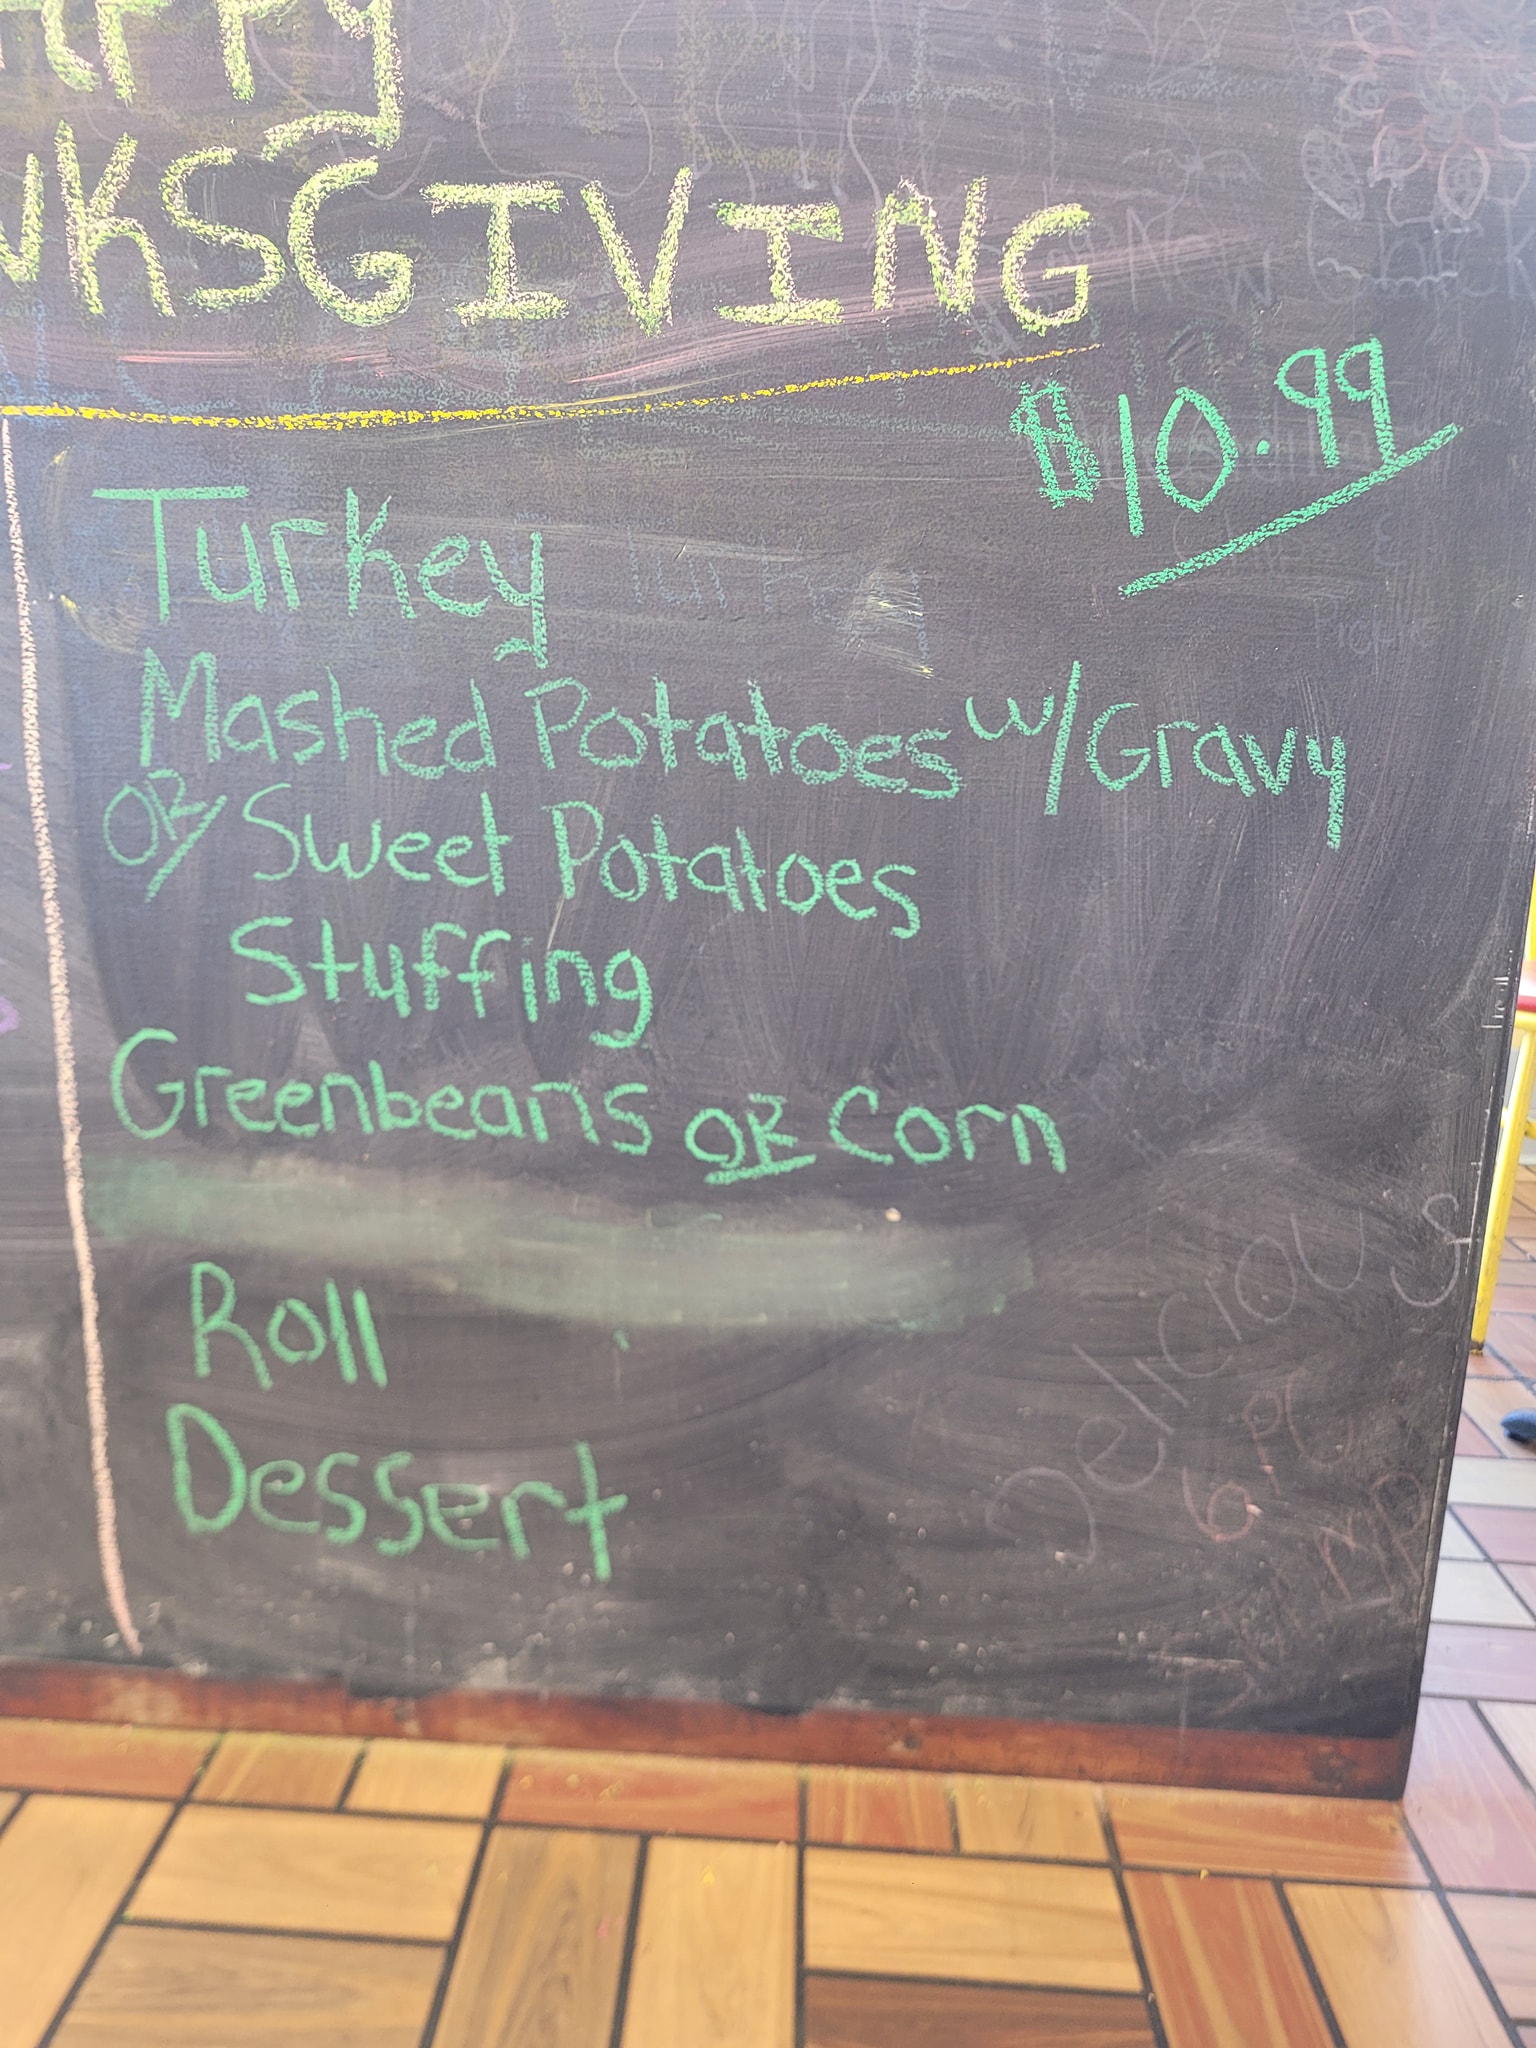 PPy
NKSGIVING
$10.99
Turkey
Mashed Potatoes w/Gravy
OR Sweet Potatoes
Stuffing
Greenbeans OR Corn
Roll
Dessert
Delicious
6 PC